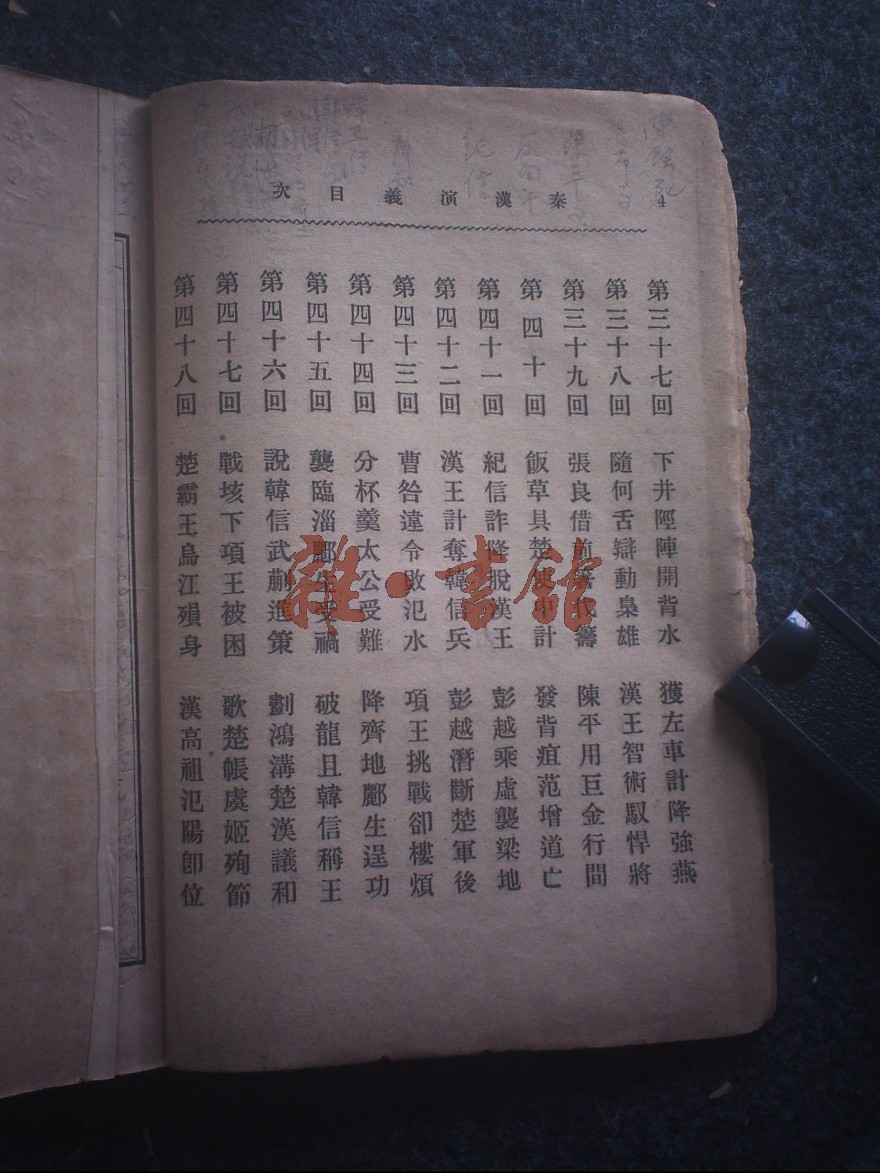 秦漢演義目次
4
第三十七回 下井陘陣開背水 獲左車計降強燕
第三十八回 隨何舌辯動梟雄 漢王智術馭悍將
第三十九回 張良借前箸代籌 陳平用巨金行間
第四十回 飯草具楚使中計 發背疽范增道亡
第四十一回 紀信詐降脫漢王 彭越乘虛襲梁地
第四十二回 漢王計奪韓信兵 彭越潛斷楚軍後
第四十三回 曹咎違令敗氾水 項王挑戰卻樓煩
第四十四回 分杯羹太公受難 降齊地酈生逞功
第四十五回 襲臨淄酈生受禍 破龍且韓信稱王
第四十六回 說韓信武蒯進策 劃鴻溝楚漢議和
第四十七回 戰垓下項王被困 歌楚帳虞姬殉節
第四十八回 楚霸王烏江殞身 漢高祖氾陽卽位
雜·書館